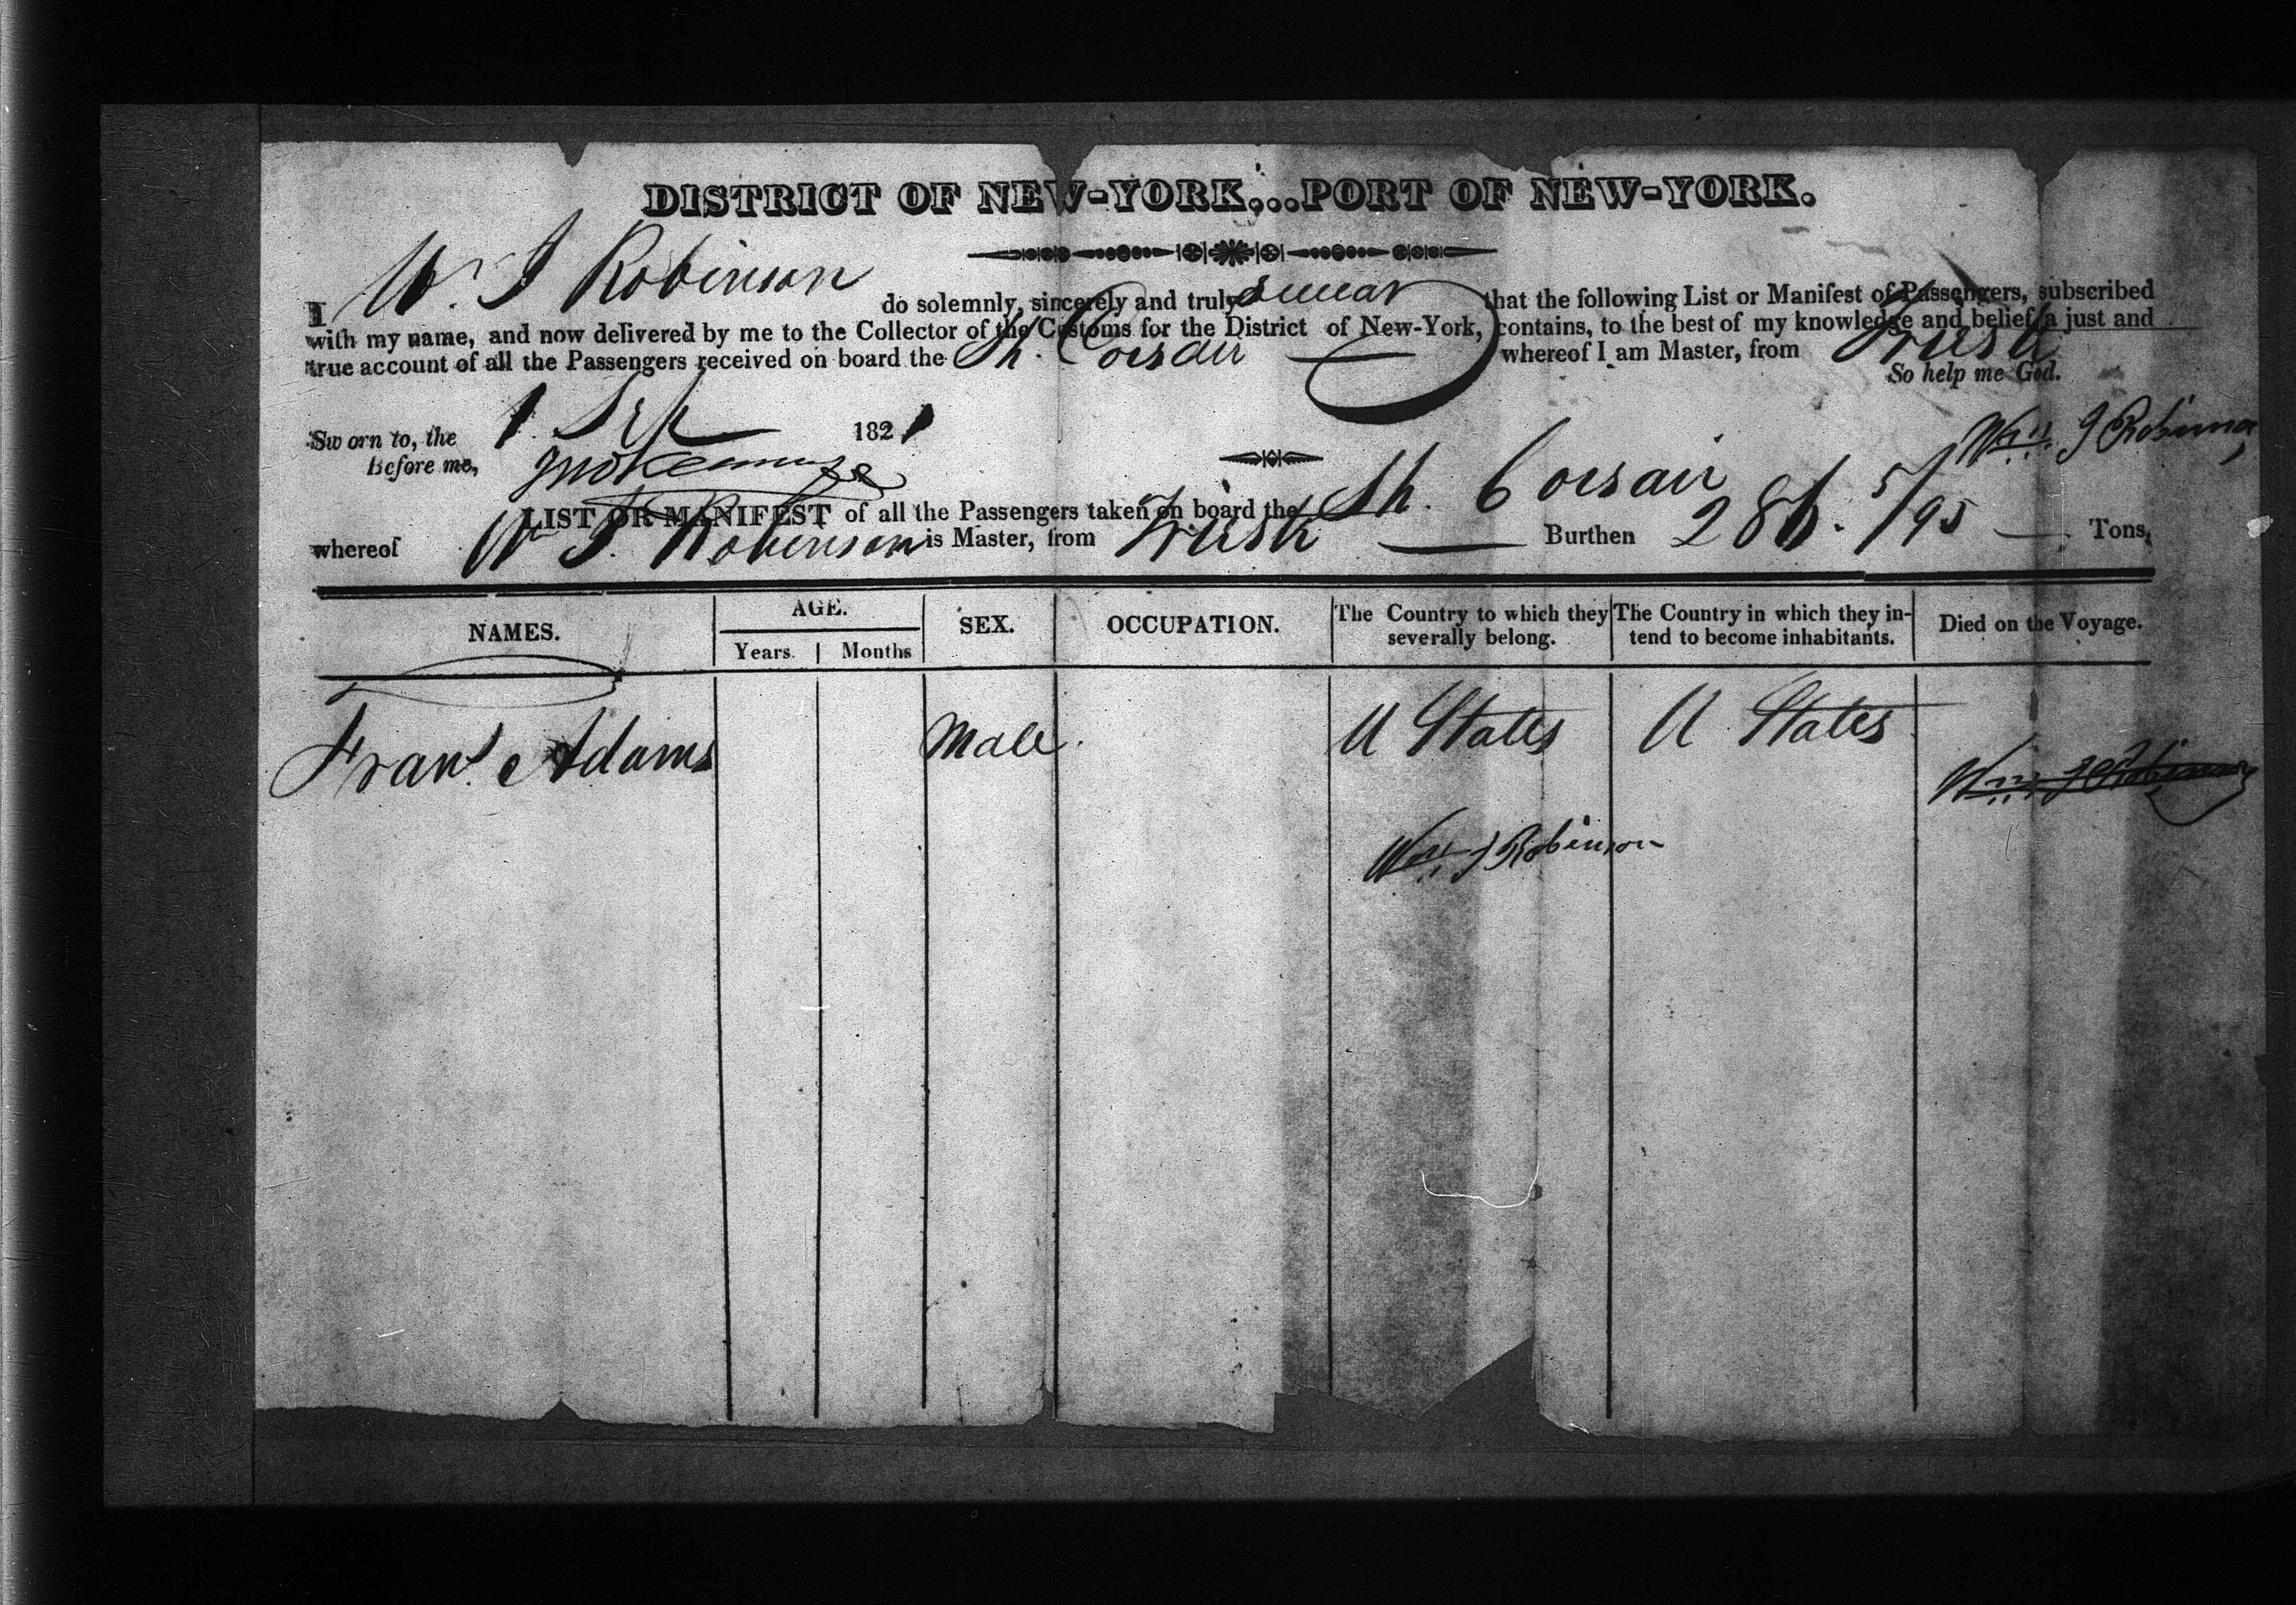 DISTRICT OF NEW-YORK,...PORT OF NEW-YORK.
I W. J Robinson do solemnly, sincerely and truly swear that the following List or Manifest of Passengers, subscribed
with my name, and now delivered by me to the Collector of the Customs for the District of New-York, contains, to the best of my knowledge and belief, a just and
true account of all the Passengers received on board the Sh. Corsair whereof I am Master, from Trieste
So help me God.
Sworn to, the 1 Sep 1821
Wm. J Robinson
Before me,
LIST OR MANIFEST of all the Passengers taken on board the Sh. Corsair
whereof Wm J. Robinson is Master, from Trieste Burthen 286. 5/95 Tons,
NAMES. AGE. SEX. OCCUPATION. The Country to which they severally belong. The Country in which they intend to become inhabitants. Died on the Voyage.
Years. Months
Frans. Adams Male. U States U. States
Wm. J Robinson
Wm. J Robinson